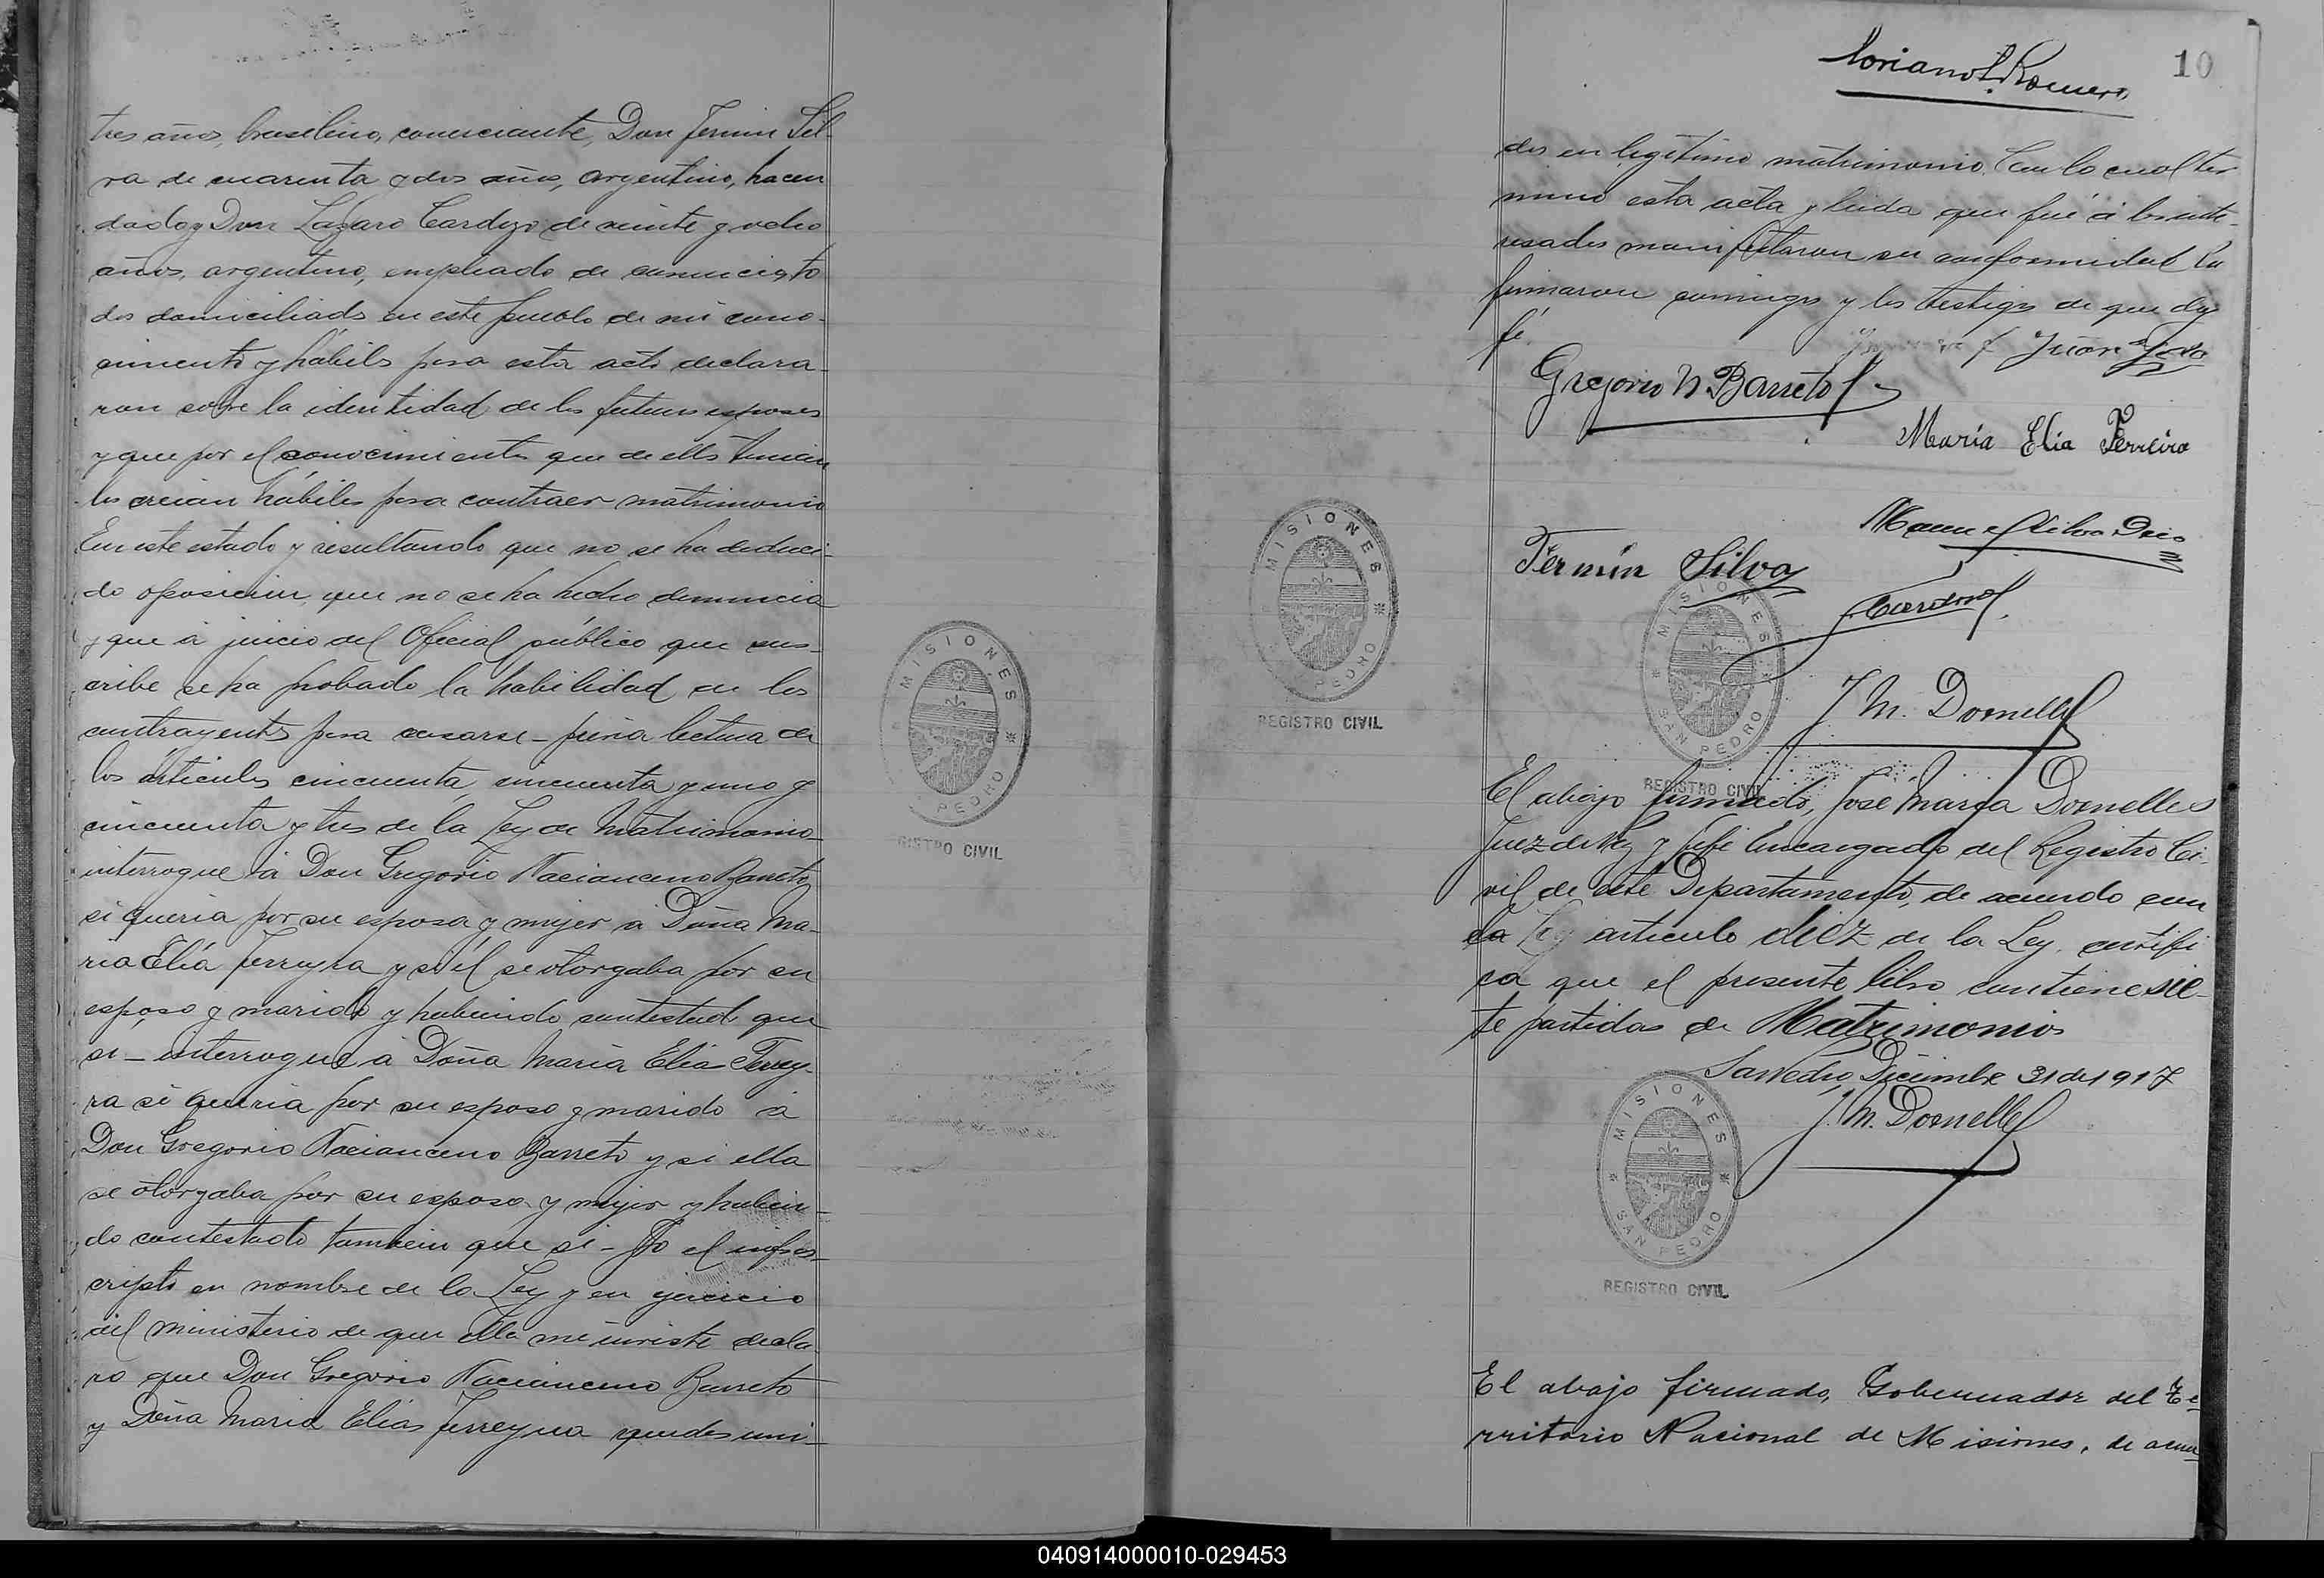 tres años, brasilero, comerciante, Don Fermin Sil-
va de cuarenta y dos años, argentino, hacen
dado y Don Lazaro Cardozo de veinte y ocho
años, argentino, empleado de comercio, to
dos domiciliados en este pueblo de mi cono-
cimiento y hábiles para esta acto declara-
ron sobre la identidad de los futuros esposos
y que por el conocimiento que de ellos tenian
los creian hábiles para contraer matrimonio
En este estado y resultando que no se ha deduci-
do oposicion, que no se ha hecho denuncia
y que á juicio del Oficial público que sus-
cribe se ha probado la habilidad de los
contrayentes para casarse – prévia lectura de
los artículos cincuenta, cincuenta y uno y
cincuenta y tres de la Ley de Matrimonio
interrogue á Don Gregorio Nacianceno Barreto
si queria por su esposa y mujer á Doña Ma-
ria Elía Ferreyra y si él se otorgaba por su
esposo y marido y habiendo contestado que
si – interrogué á Doña María Elia Ferrey-
ra si queria por su esposo y marido á
Don Gregorio Nacianceno Barreto y si ella
se otorgaba por su esposa y mujer y habien-
do contestado tambien que si – Yo el infras-
cripto en nombre de la Ley y en ejercicio
del ministerio de que ella me inviste decla-
ro que Don Gregorio Nacianceno Barreto
y Doña Maria Elías Ferreyra quedan uni-
MISIONES
PEDRO
GISTRO CIVIL
10
Romero
dos en legítimo matrimonio. Con lo cual ter
minó esta acta y leida que fué á los inte-
resados manifestaron su conformidad la
firmaron conmigo y los testigos de que doy
fé.
Juan
Gregorio N Barreto
María Elia Ferreira
Manuel Silva
Fermín Silva
Cardozo
MISIONES
PEDRO
REGISTRO CIVIL
MISIONES
SAN PEDRO
REGISTRO CIVIL
J. M. Dornelles
El abajo firmado, José Maria Dornelles
Juez de Paz y Jefe Encargado del Registro Ci-
vil de este Departamento, de acuerdo con
la Ley artículo diez de la Ley, certifi
ca que el presente libro contiene sie-
te partidas de Matrimonios
San Pedro, Diciembre 31 de 1917
J. M. Dornelles
MISIONES
SAN PEDRO
REGISTRO CIVIL
El abajo firmado, Gobernador del Te-
rritorio Nacional de Misiones, de acuer
040914000010-029453